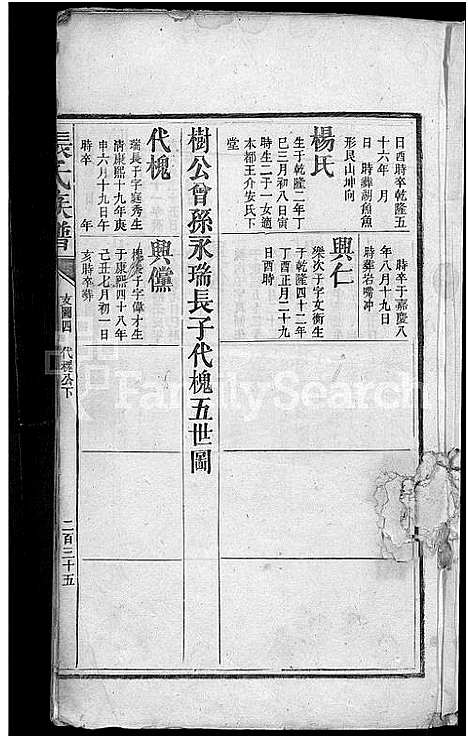 日酉時卒乾隆五
十六年 月
日 時葬湖魚魚
形艮山坤向
楊氏
生于乾隆二年丁
巳三月初八日寅
時生二子一女適
本都王介安氏下
堂
時卒于嘉慶八
年八月十九日
時葬岩嘴冲
興仁
樂次子字女衡生
于乾隆四十二年
丁酉正月二十九
日酉時
樹公曾孫永瑞長子代槐五世圖
代槐
瑞長子字庭秀生
清康熙十九年庚
申六月十九日午
時卒 年
興儻
槐長子字偉才生
于康熙四十八年
己丑七月初一日
亥時卒葬
張氏族譜
支圖四 代槐公下
二百三十五
FamilySearch